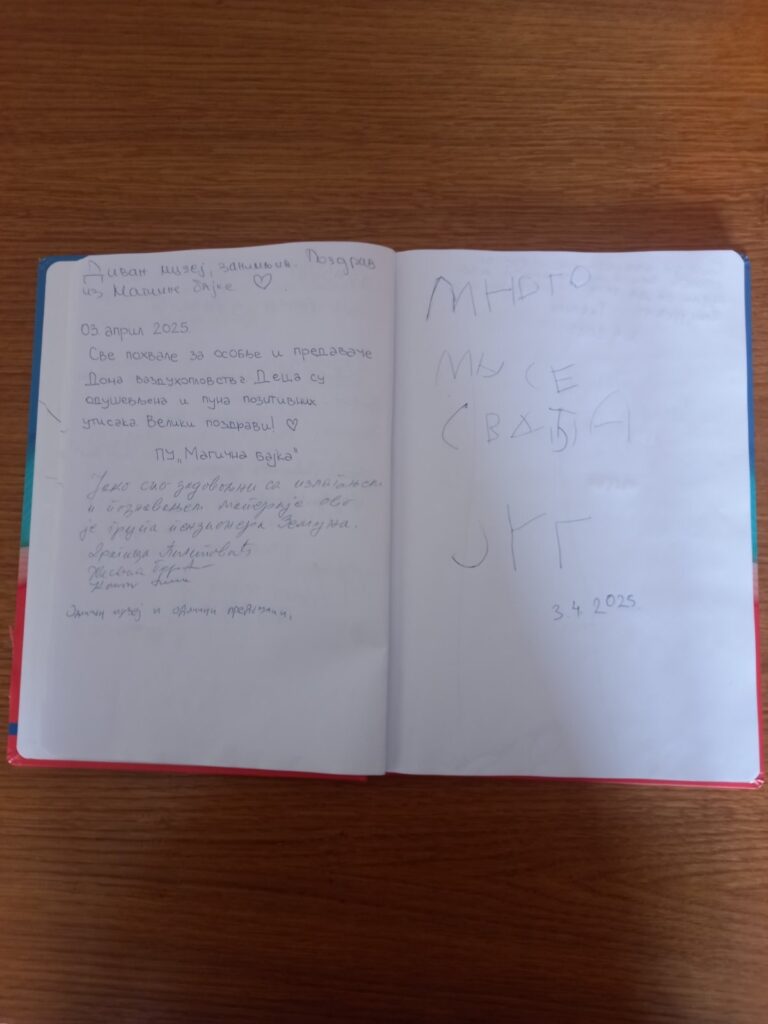 Диван музеј, занимљив. Поздрав
из Магичне бајке ♡.
03. април 2025.
Све похвале за особље и предаваче
Дома ваздухопловства. Деца су
одушевљена и пуна позитивних
утисака. Велики поздрави! ♡
ПУ „Магична бајка“
Јако смо задовољни са излагањем
и познавањем материје ово
је група пензионера Земуна.
Одличан музеј и одлични предавачи,
МНОГО
МИ СЕ
СВАЂА
ЈУГ
3.4.2025.